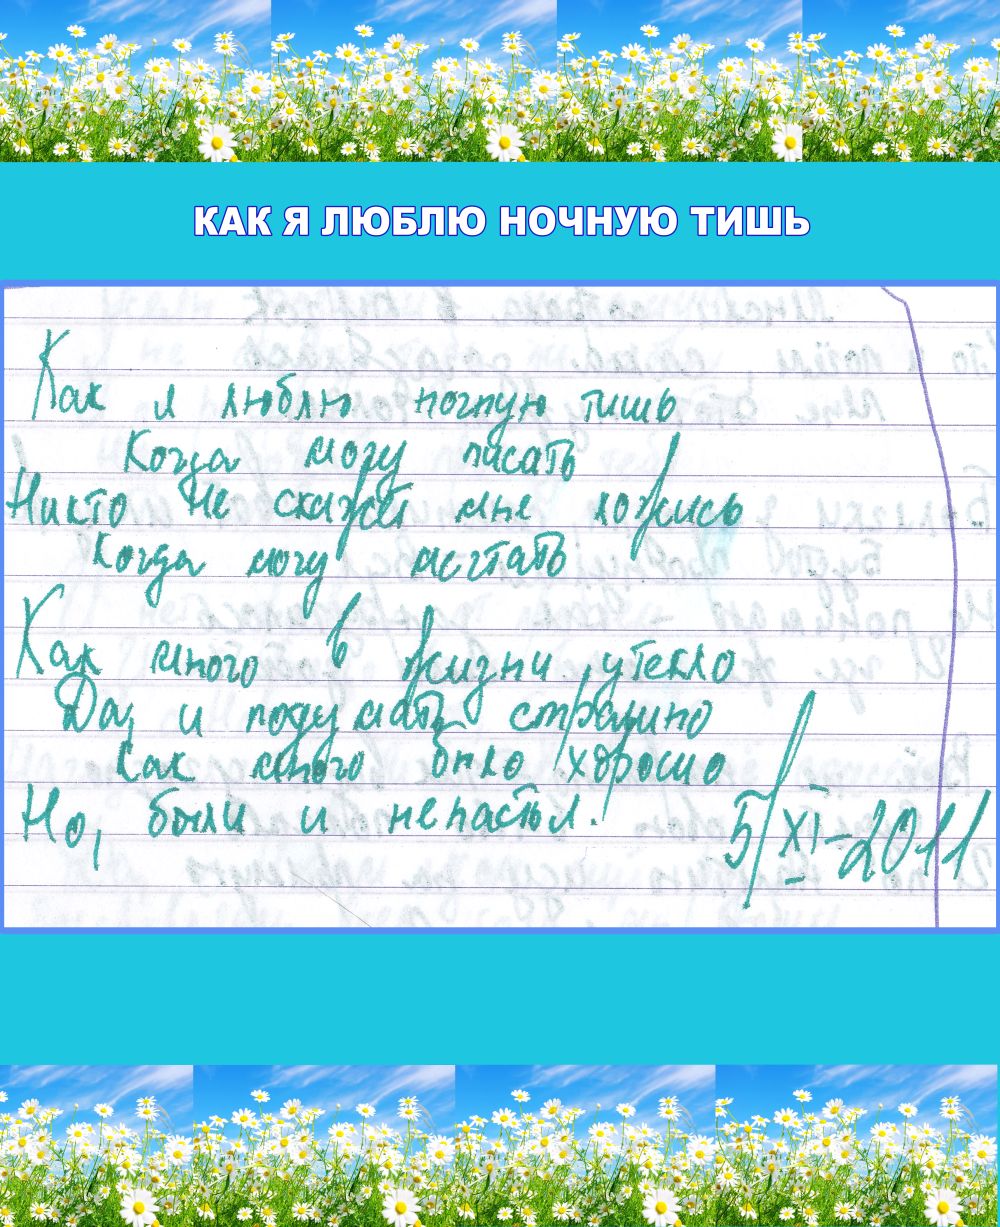 КАК Я ЛЮБЛЮ НОЧНУЮ ТИШЬ
Как я люблю ночную тишь
Когда могу писать
Никто не скажет мне ложись
Когда могу мечтать
Как много в жизни утекло
Да, и подумать страшно
Как много было хорошо
Но, были и ненастья.
5/XI-2011